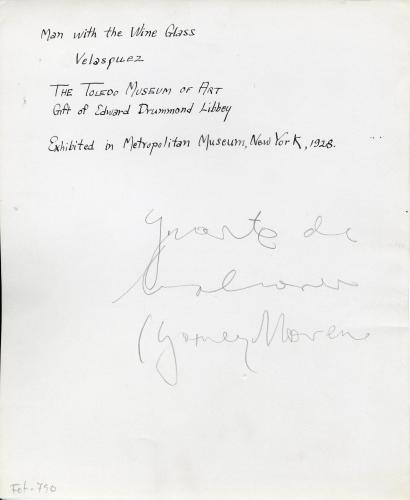 Man with the Wine Glass
Velasquez
THE TOLEDO MUSEUM OF ART
Gift of Edward Drummond Libbey
Exhibited in Metropolitan Museum, New York, 1928.
de
Fot-790